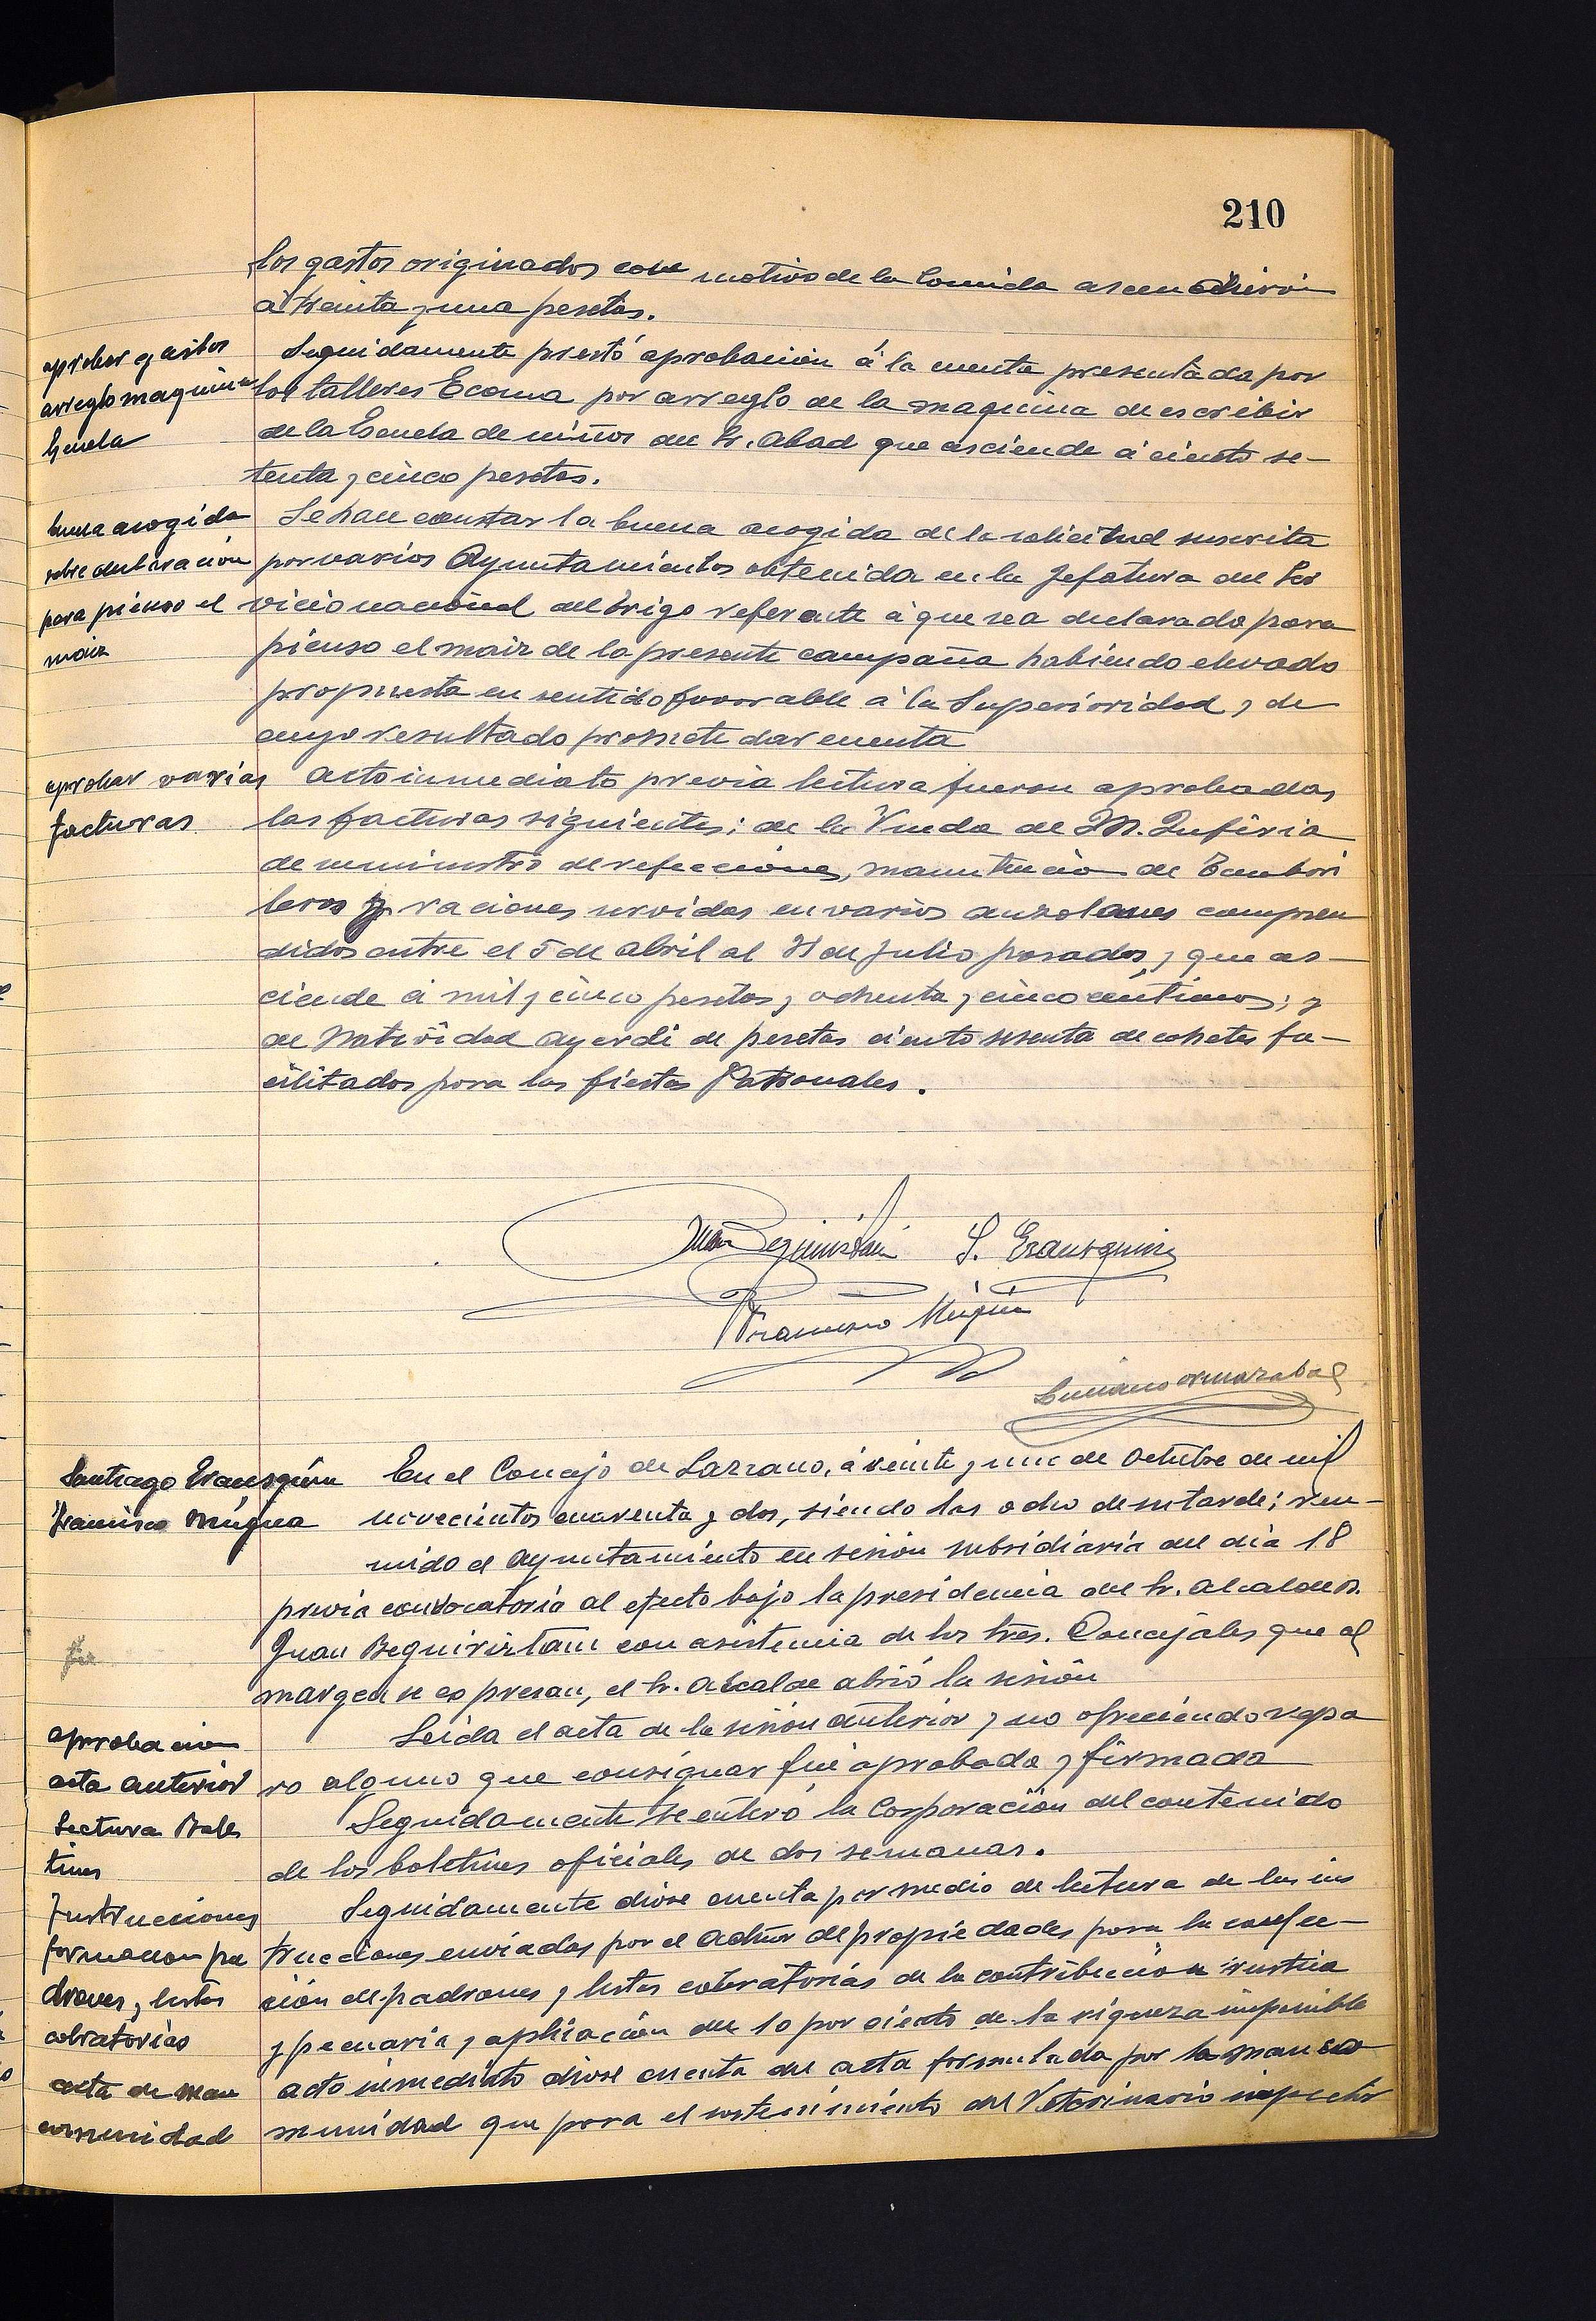 210
los gastos originados con motivo de la comida ascendieron
á treinta y una pesetas.
aprobar gastos
arreglo maquina
Escuela
Seguidamente prestó aprobación á la cuenta presentada por
los talleres Ecoma por arreglo de la maquina de escribir
de la Escuela de niños del Sr. Abad que asciende á ciento se-
tenta y cinco pesetas.
buena acogida
sobre declaración
para pienso el
maiz
Se hace constar la buena acogida de la solicitud suscrita
por varios Ayuntamientos obtenida en la Jefatura del Ser
vicio nacional del trigo referente á que sea declarado para
pienso el maiz de la presente campaña habiendo elevado
propuesta en sentido favorable á la Superioridad y de
cuyo resultado promete dar cuenta
aprobar varias
facturas
Acto inmediato previa lectura fueron aprobadas
las facturas siguientes: de la Viuda de M.
de suministro de refecciones, manutención de Tambori
leros y raciones servidas en varios auzolanes compren
didos entre el 5 de abril al 31 de Julio pasados, y que as-
ciende á mil y cinco pesetas y ochenta y cinco centimos; y
de Natividad Ayerdi de pesetas ciento sesenta de cohetes fa-
cilitados para las fiestas Patronales.
Juan Beguiristain S. Erausquin
Francisco Múgica
Luciano Ormazabal
Santiago Erausquin
Francisco Múgica
En el Concejo de Lazcano, á veinte y uno de Octubre de mil
novecientos cuarenta y dos, siendo las ocho de su tarde; reu-
nido el Ayuntamiento en sesión subsidiária del día 18
previa convocatoria al efecto bajo la presidencia del Sr. Alcalde D.
Juan Beguiristain con asistencia de los Sres. Concejales que al
margen se expresan, el Sr. Alcalde abrió la sesión
aprobacion
acta anterior
Leida el acta de la sesión anterior y no ofreciendo repa
ro alguno que consignar fué aprobada y firmada
Lectura Bole
tines
Seguidamente se enteró la Corporación del contenido
de los boletines oficiales de dos semanas.
Instrucciones
formacion pa
drones y listas
cobratorias
Seguidamente dióse cuenta por medio de lectura de las ins
trucciones enviadas por el Admor de propiedades para la confec-
ción de padrones y listas cobratorias de la contribución rustica
y pecuaria y apliación del 10 por ciento de la riqueza imponible
acta de man
comunidad
acto inmediato dióse cuenta del acta formulada por la manco
munidad que para el sostenimiento del Veterinario inspector